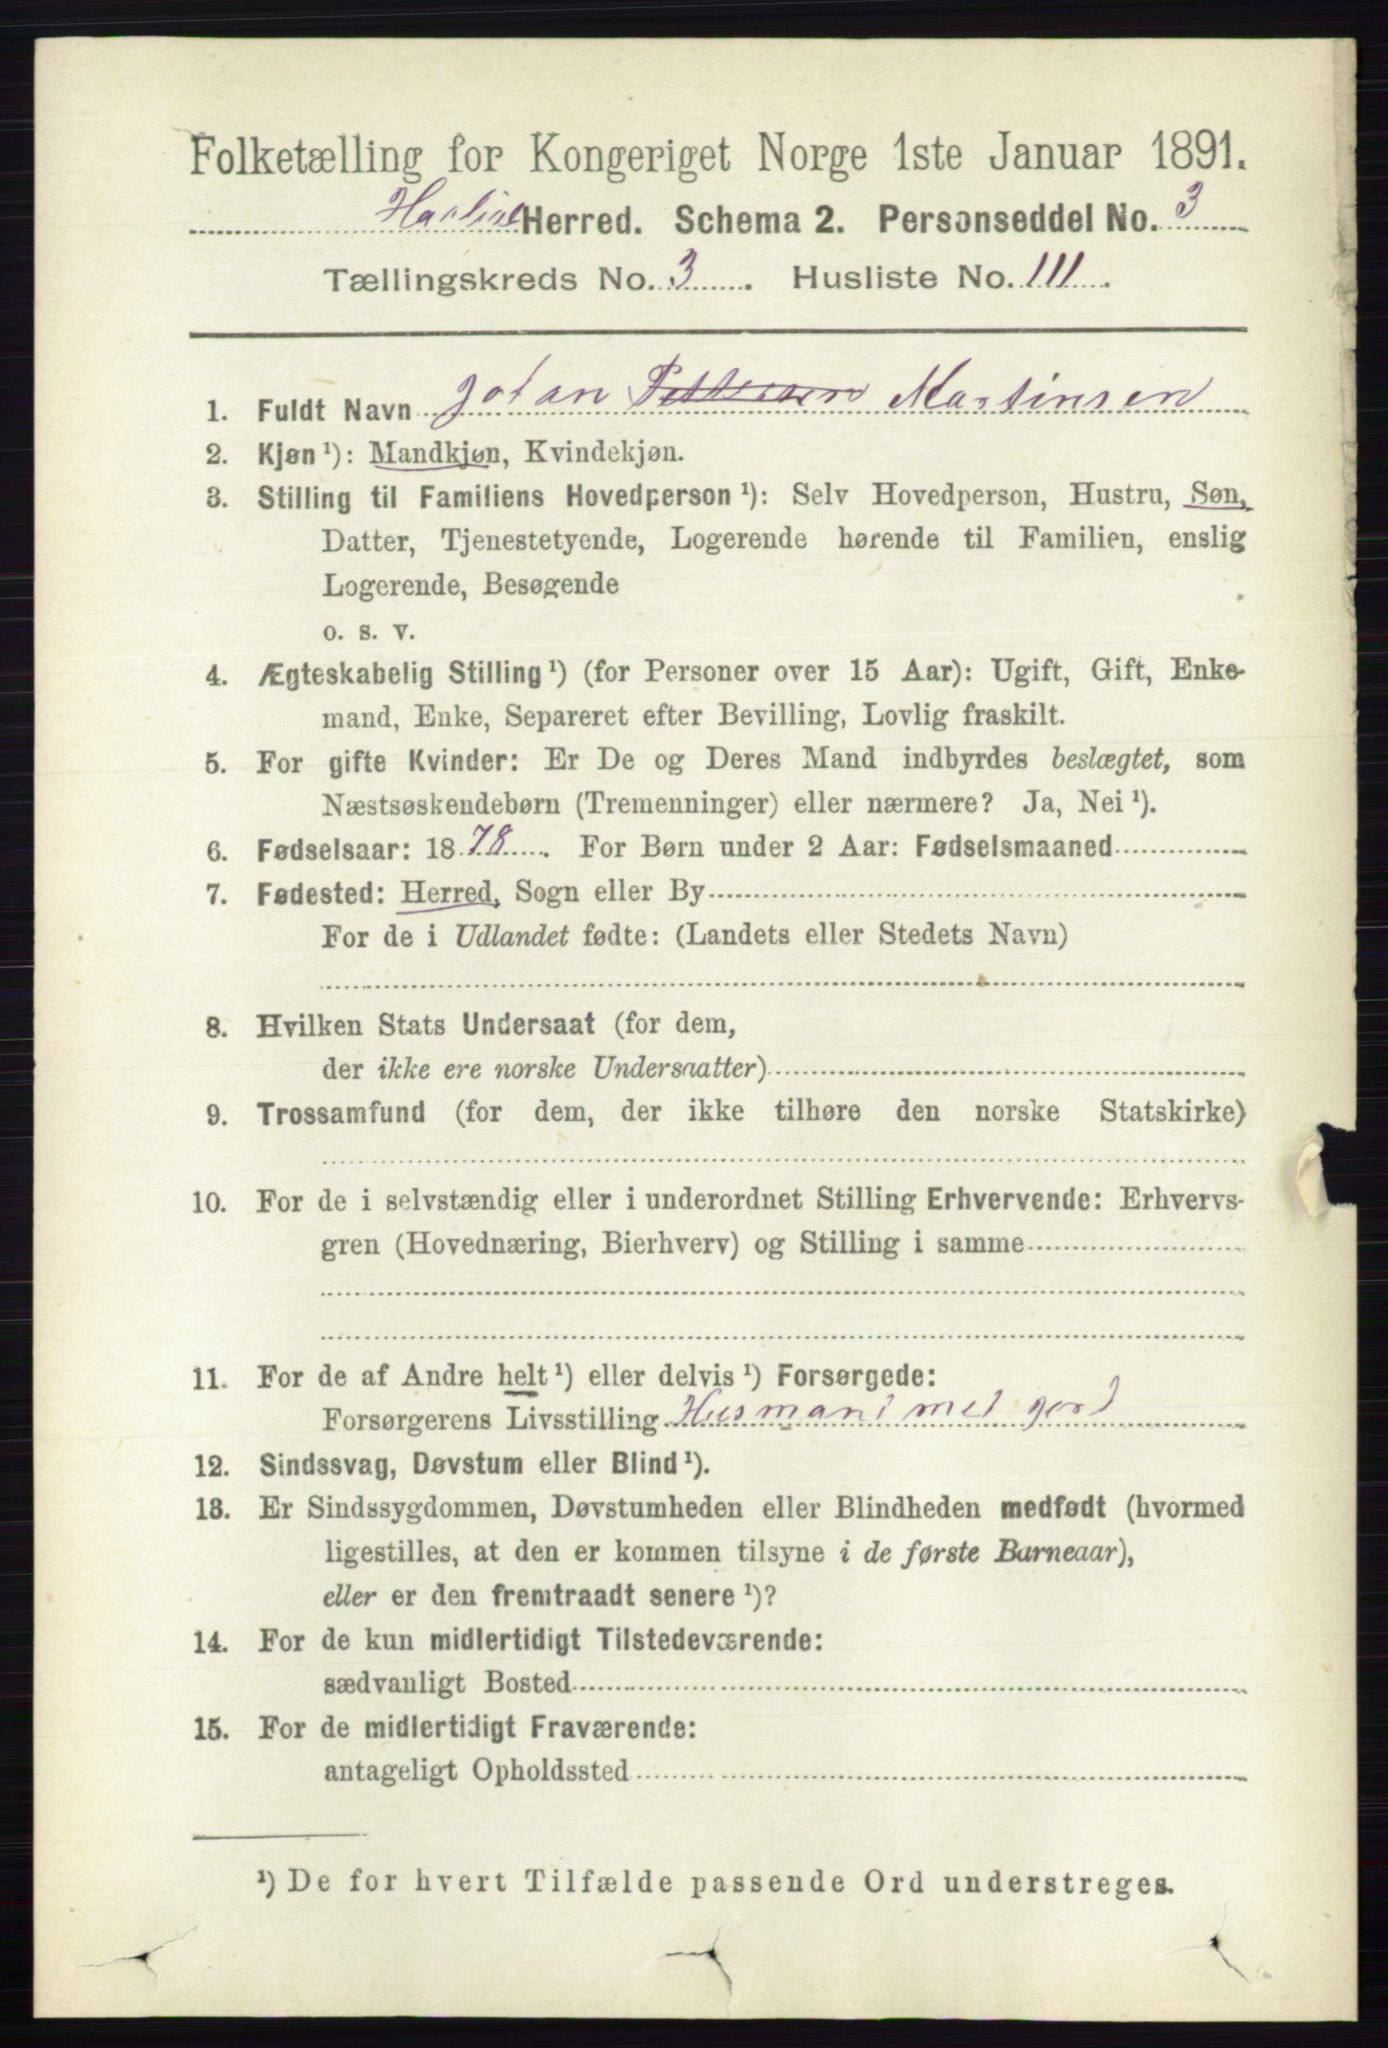 Folketælling for Kongeriget Norge 1ste Januar 1891.
Herred. Schema 2. Personseddel No. 3
Tællingskreds No. 3. Husliste No. 111.
1. Fuldt Navn Johan Pettersen Martinsen
2. Kjøn ¹): Mandkjøn, Kvindekjøn.
3. Stilling til Familiens Hovedperson ¹): Selv Hovedperson, Hustru, Søn,
Datter, Tjenestetyende, Logerende hørende til Familien, enslig
Logerende, Besøgende
o. s. v.
4. Ægteskabelig Stilling ¹) (for Personer over 15 Aar): Ugift, Gift, Enke-
mand, Enke, Separeret efter Bevilling, Lovlig fraskilt.
5. For gifte Kvinder: Er De og Deres Mand indbyrdes beslægtet, som
Næstsøskendebørn (Tremenninger) eller nærmere? Ja, Nei ¹).
6. Fødselsaar: 1878. For Børn under 2 Aar: Fødselsmaaned
7. Fødested: Herred, Sogn eller By
For de i Udlandet fødte: (Landets eller Stedets Navn)
8. Hvilken Stats Undersaat (for dem,
der ikke ere norske Undersaatter)
9. Trossamfund (for dem, der ikke tilhøre den norske Statskirke)
10. For de i selvstændig eller i underordnet Stilling Erhvervende: Erhvervs-
gren (Hovednæring, Bierhverv) og Stilling i samme
11. For de af Andre helt ¹) eller delvis ¹) Forsørgede:
Forsørgerens Livsstilling Husmand med jord
12. Sindssvag, Døvstum eller Blind ¹).
13. Er Sindssygdommen, Døvstumheden eller Blindheden medfødt (hvormed
ligestilles, at den er kommen tilsyne i de første Barneaar),
eller er den fremtraadt senere ¹)?
14. For de kun midlertidigt Tilstedeværende:
sædvanligt Bosted
15. For de midlertidigt Fraværende:
antageligt Opholdssted
¹) De for hvert Tilfælde passende Ord understreges.